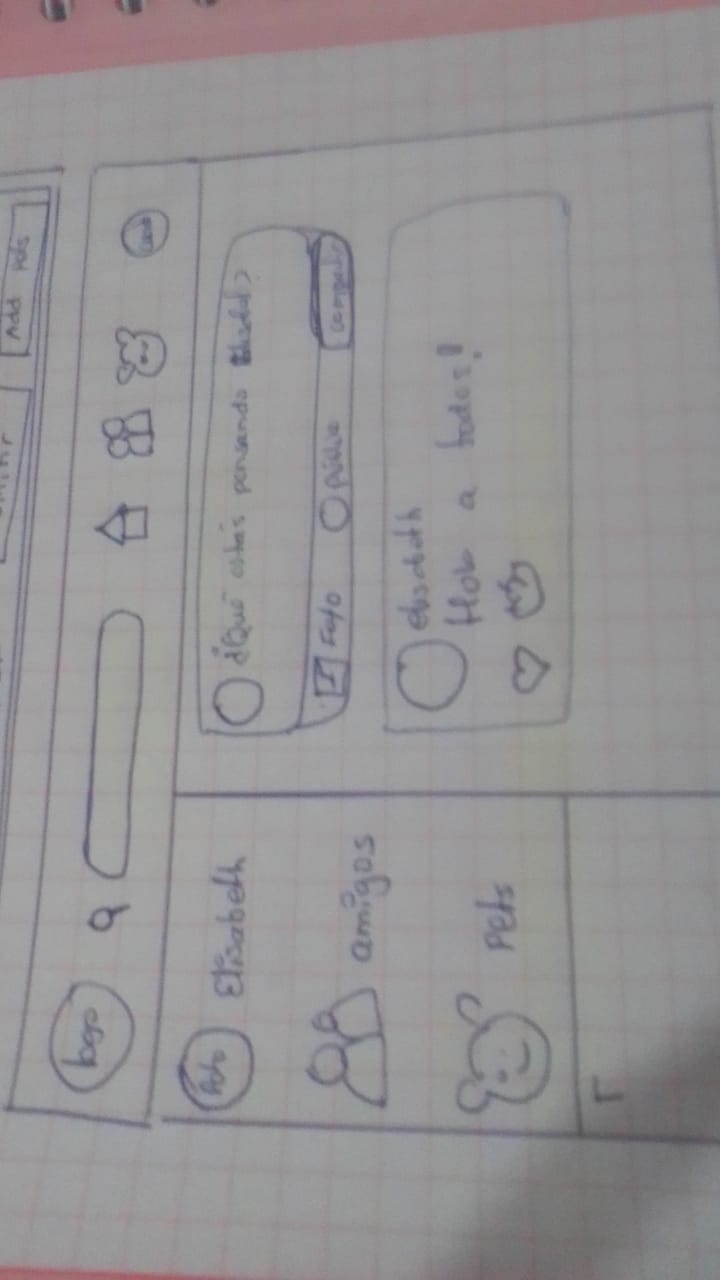 Add Pets
logo
Foto
Elisabeth
amigos
Pets
¿Qué estás pensando
Foto
público
compartir
elisabeth
Hola a todos!